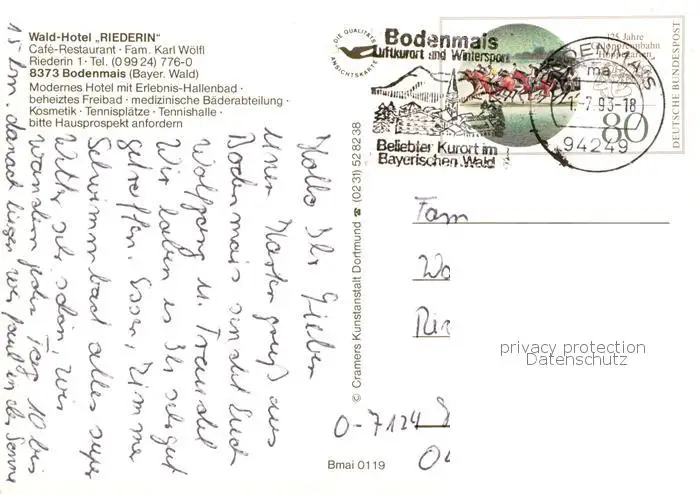 Wald-Hotel „RIEDERIN"
Café-Restaurant · Fam. Karl Wölfl
Riederin 1 · Tel. (0 99 24) 776-0
8373 Bodenmais (Bayer. Wald)
Modernes Hotel mit Erlebnis-Hallenbad ·
beheiztes Freibad · medizinische Bäderabteilung ·
Kosmetik · Tennisplätze · Tennishalle ·
bitte Hausprospekt anfordern
Hallo Ihr Lieben
Einen Kartengruß aus
Bodenmais sendet Euch
Wolfgang u. Traudel
Wir haben es sehr gut
getroffen. Essen, Zimmer
Schwimmbad alles super
Wetter sehr schön, wir
wandern jeden Tag 10 bis
15 km. danach liegen wir faul in der Sonne
DIE QUALITÄTS
ANSICHTSKARTE
© Cramers Kunstanstalt Dortmund ☎ (02 31) 52 82 38
Bmai 0119
Bodenmais
Luftkurort und Wintersport
Beliebter Kurort im
Bayerischen Wald
BODENMAIS
ma
-7.93-18
94249
125 Jahre
Galopprennbahn
80
DEUTSCHE BUNDESPOST
Fam
O-7124
privacy protection
Datenschutz